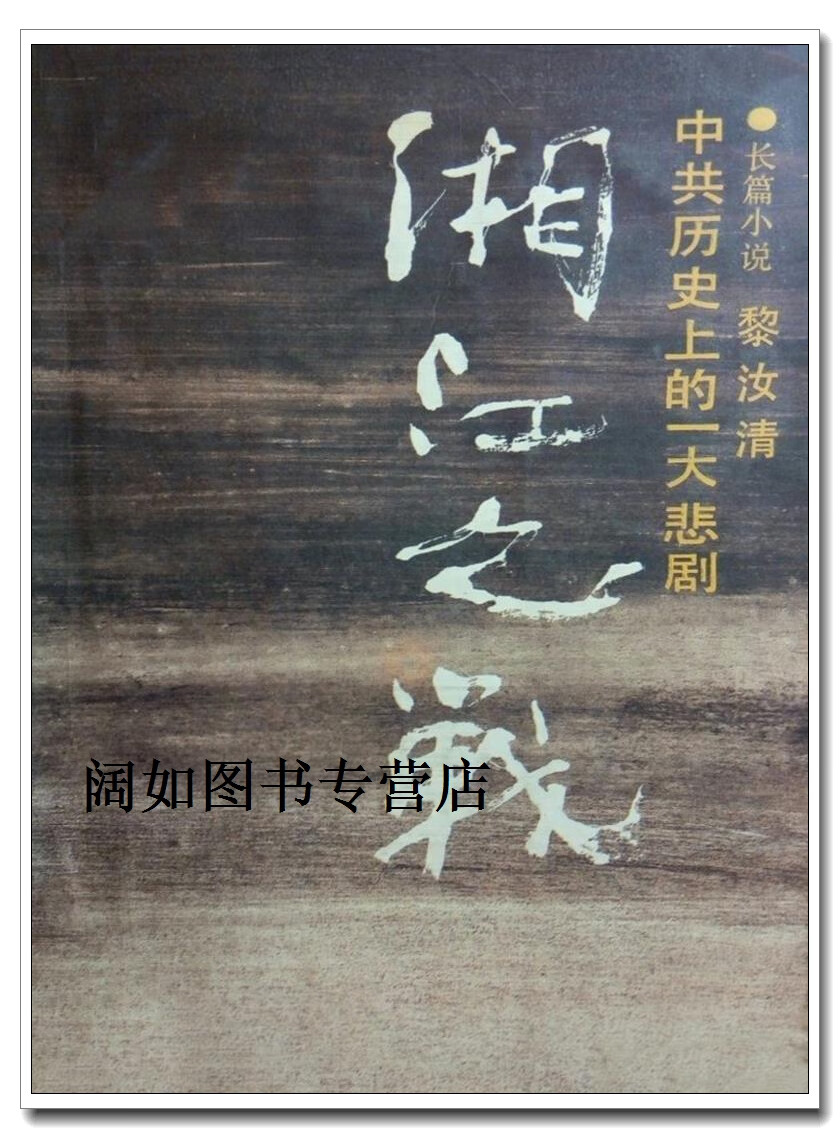 长篇小说 黎汝清
中共历史上的一大悲剧
湘江之戰
阔如图书专营店